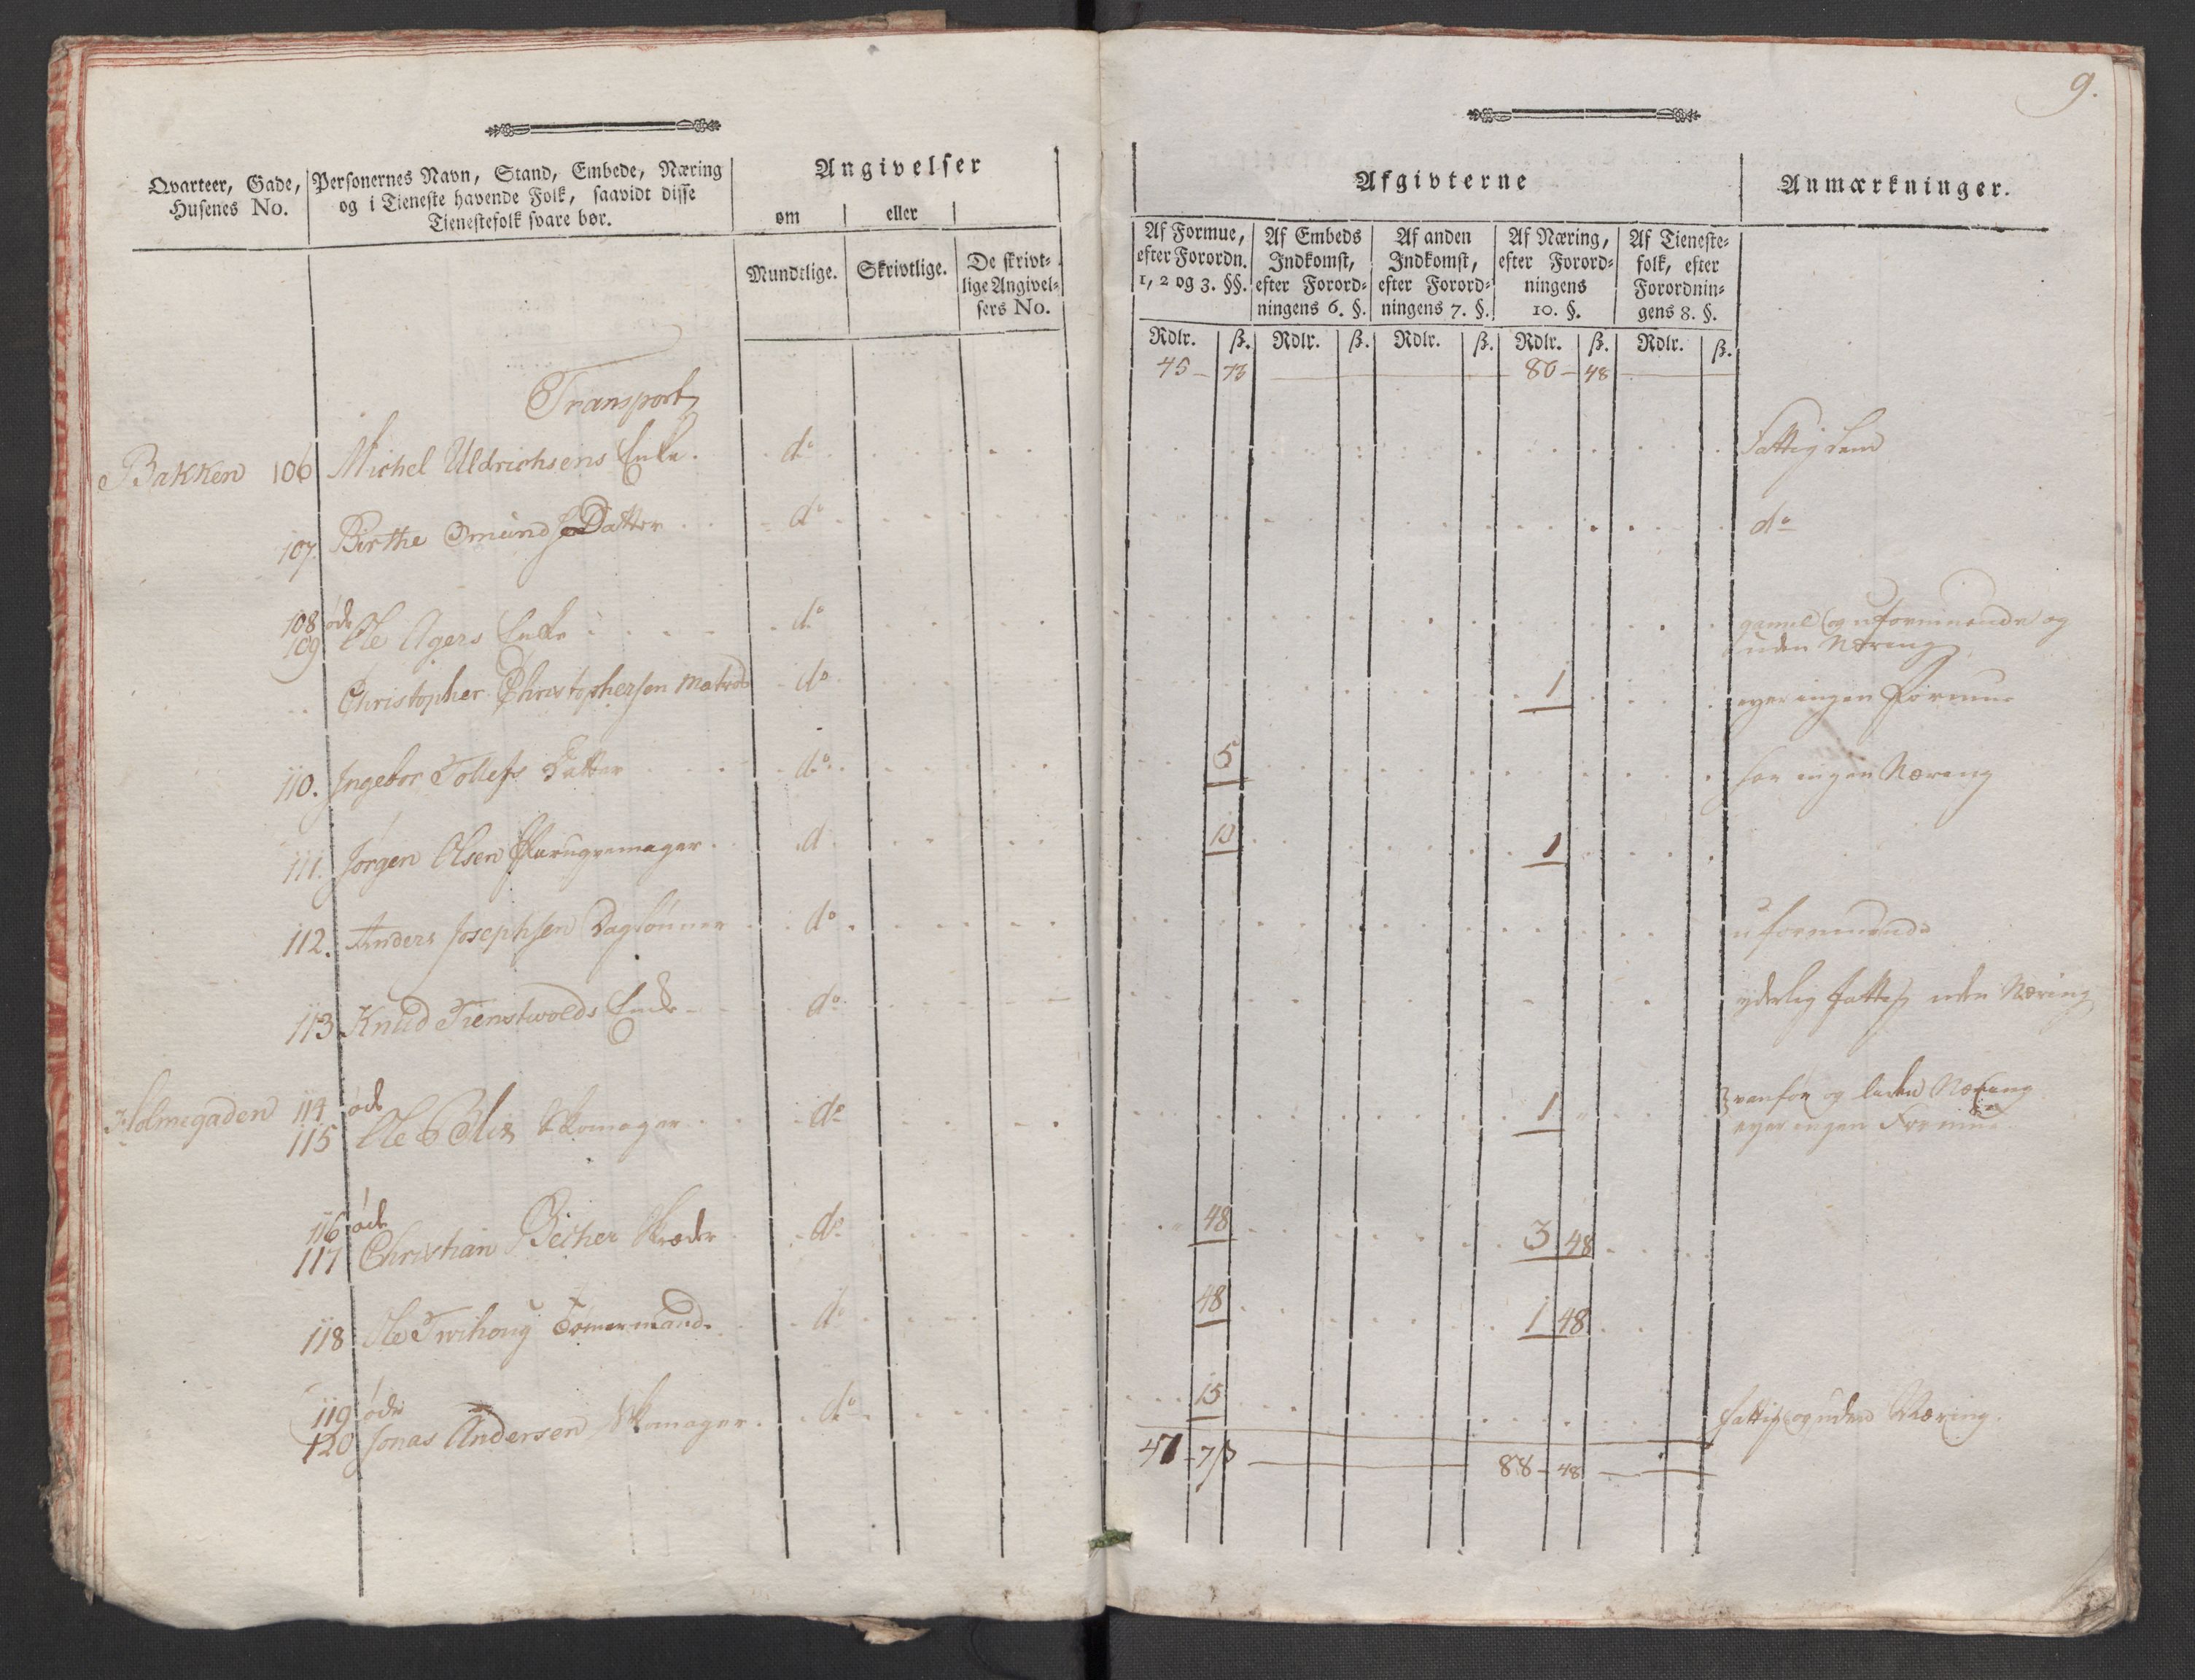 9.
Qvarteer, Gade, Husenes No.
Personernes Navn, Stand, Embede, Næring
og i Tieneste havende Folk, saavidt disse
Tienestefolk svare bør.
Angivelser
om eller
Mundtlige. Skrivtlige. De skrivt-
lige Angivel-
sers No.
Afgivterne
Anmærkninger.
Af Formue,
efter Forordn.
1, 2 og 3. §§.
Af Embeds
Indkomst,
efter Forord-
ningens 6. §.
Af anden
Indkomst,
efter Forord-
ningens 7. §.
Af Næring,
efter Forord-
ningens
10. §.
Af Tieneste-
folk, efter
Forordnin-
gens 8. §.
Rdlr. ß. Rdlr. ß. Rdlr. ß. Rdlr. ß. Rdlr. ß.
Transport 45 - 73 80 - 48
Bakken 106 Michel Uldrichsens Enke. do Fattig Lem
107. Birthe Omunds Datter do do
108 øde
109 Ole Agers Enke do gamel og uformuende og
uden Næring
Christopher Christophersen Matros do 1 eyer ingen Formue
110. Ingebor Tollefs Datter do 5 har ingen Næring
111. Jørgen Olsen Parugvemager. d 10 1
112. Anders Josephsen Daglønner do uformuende
113 Knud Tienstwolds Enke do yderlig fattig uden Næring
Holmegaden 114 øde
115 Ole Skomager do 1 vanfør og liden Næring
eyer ingen Formue
116 øde
117 Christian Becher Skræder do 48 3 48
118 Ole Tømermand. do 48 1 48
119 øde
120 Jonas Andersen Skomager. do 15 fattig og uden Næring.
47 - 7 ß 88 - 48